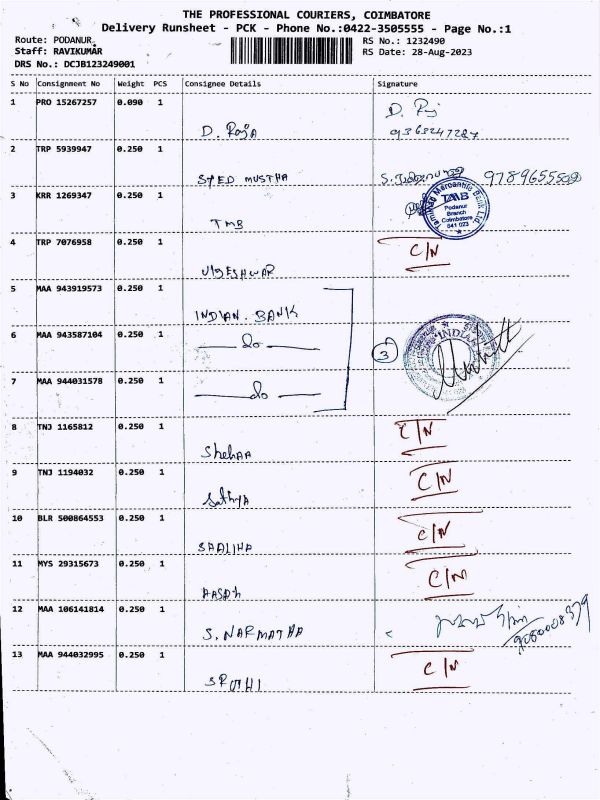 THE PROFESSIONAL COURIERS, COIMBATORE
Delivery Runsheet - PCK - Phone No.:0422-3505555 - Page No.:1
Route: PODANUR
Staff: RAVIKUMAR
DRS No.: DCJB123249001
RS No.: 1232490
RS Date: 28-Aug-2023
S No Consignment No Weight PCS Consignee Details Signature
1 PRO 15267257 0.090 1
D. Raja
D. Raj
2 TRP 5939947 0.250 1
SYED MUSTHA
3 KRR 1269347 0.250 1
TMB
Tamilnad Mercantile Bank Ltd.
TMB
Podanur
Branch
Coimbatore
641 023
4 TRP 7076958 0.250 1
VIGESHWAR
C/N
5 MAA 943919573 0.250 1
INDIAN. BANK
6 MAA 943587104 0.250 1
do
3
INDIAN
7 MAA 944031578 0.250 1
do
8 TNJ 1165812 0.250 1
C/N
9 TNJ 1194032 0.250 1
Sathya
C/N
10 BLR 500864553 0.250 1
SAALIHA
C/N
11 MYS 29315673 0.250 1
C/N
12 MAA 106141814 0.250 1
S. NARMATHA
13 MAA 944032995 0.250 1
C/N